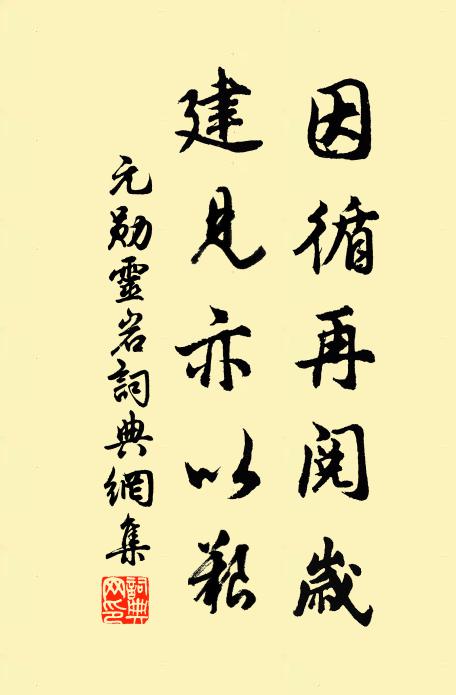 因循再阅歲
建見亦以艱
元勋靈岩詞典網集
詞典网印